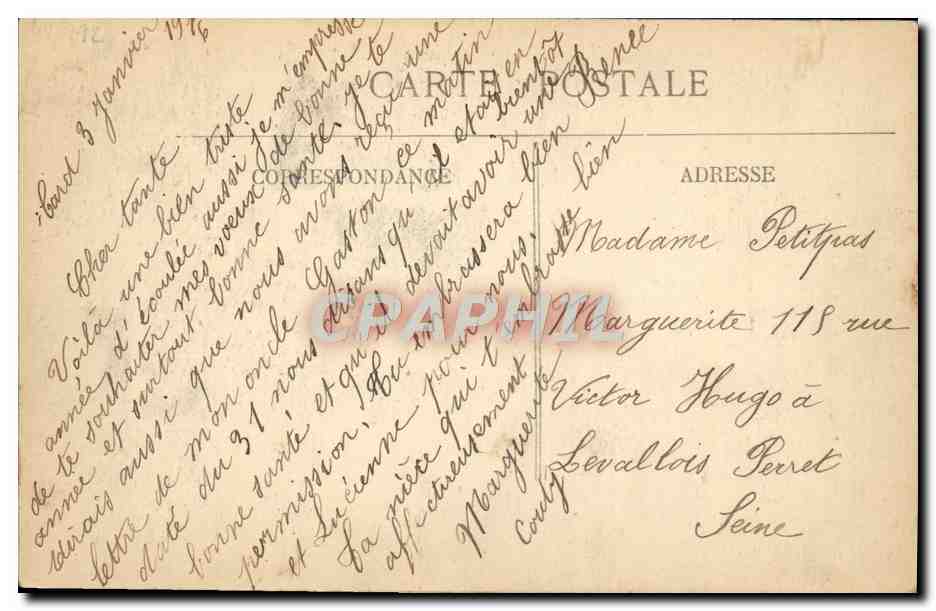 CARTE POSTALE
CORRESPONDANCE
ADRESSE
3 Janvier 1916
Cher tante
Voilà une bien triste
année d'écoulée aussi je m'empresse
de te souhaiter mes voeux de bonne
année et surtout bonne santé. Je te
dirais aussi que nous avons reçu une
lettre de mon oncle Gaston ce matin
daté du 31 nous disans qu'il etai en
bonne santé et qu'il devait avoir bientôt
permission. Tu embrassera bien
et Lucienne pour nous.
Ta nièce qui t'embrasse bien
affectueusement
Marguerite
Madame Petitpas
Marguerite 115 rue
Victor Hugo à
Levallois Perret
Seine
CPAPHIL